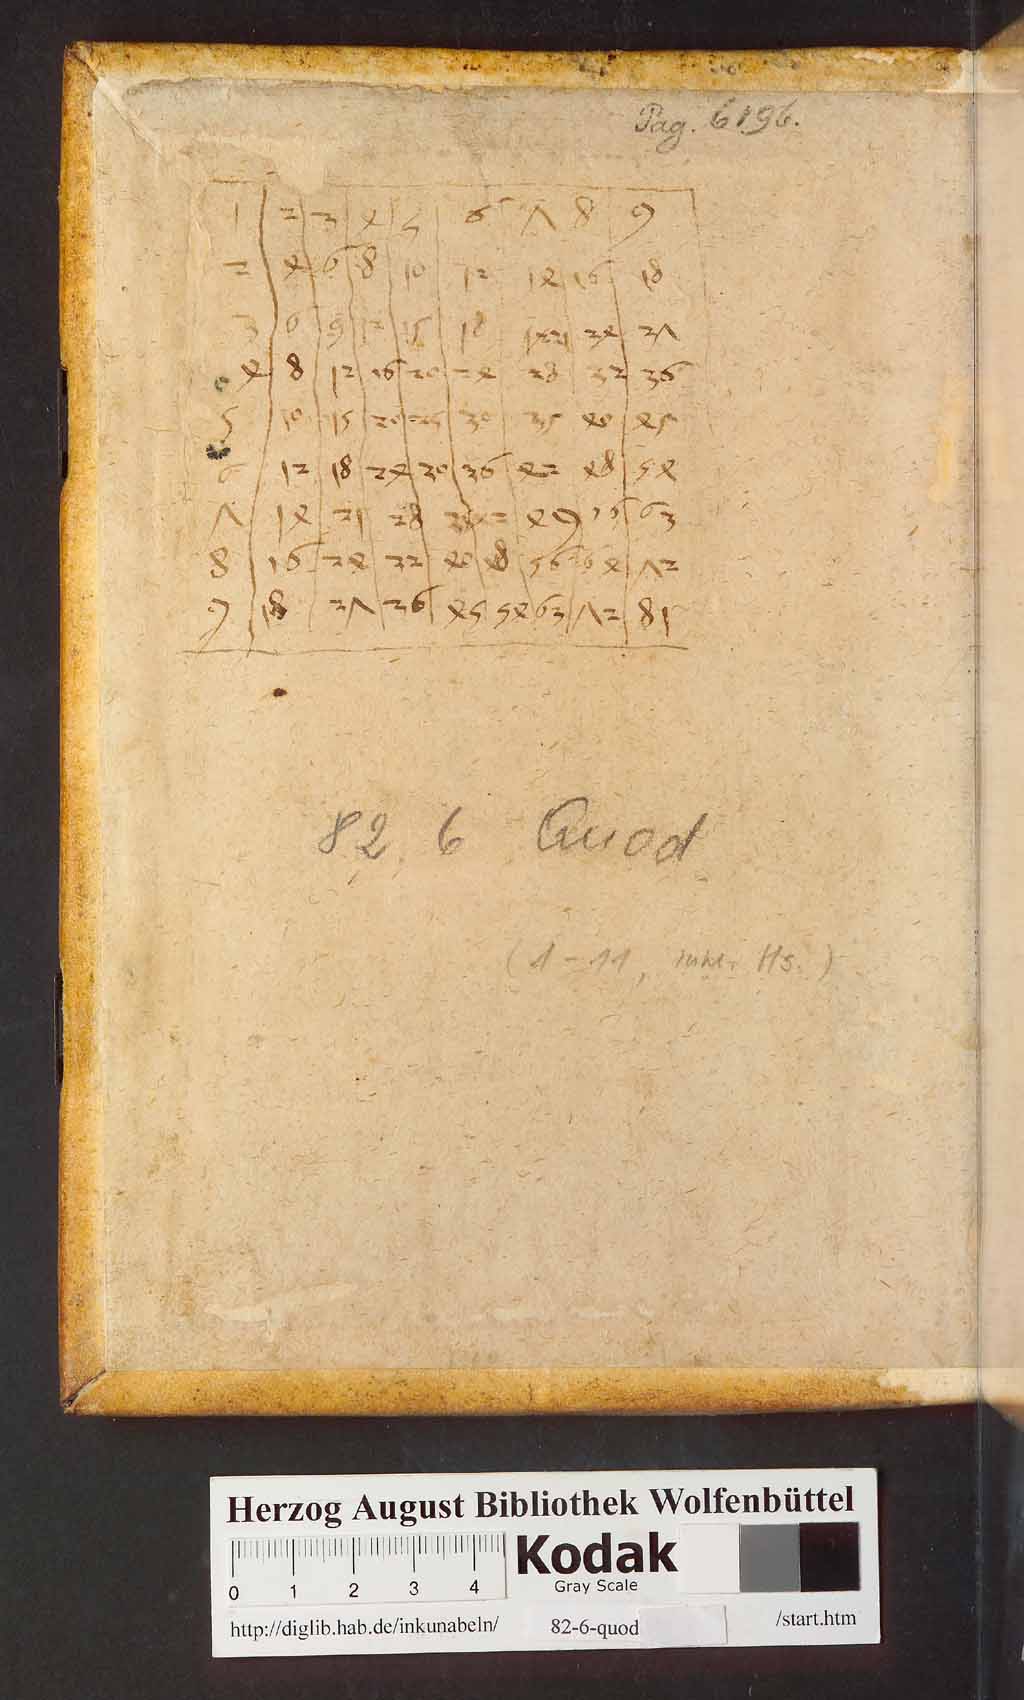 Pag. 6196.
1 2 3 4 5 6 7 8 9
2 4 6 8 10 12 14 16 18
3 6 9 12 15 18 21 24 27
4 8 12 16 20 24 28 32 36
5 10 15 20 25 30 35 40 45
6 12 18 24 30 36 42 48 54
7 14 21 28 42 49 63
8 16 24 32 40 48 56 64 72
9 18 27 36 45 54 63 72 81
82 6 Quod
(1-11, Hs.)
Herzog August Bibliothek Wolfenbüttel
Kodak
Gray Scale
0 1 2 3 4
http://diglib.hab.de/inkunabeln/ 82-6-quod /start.htm